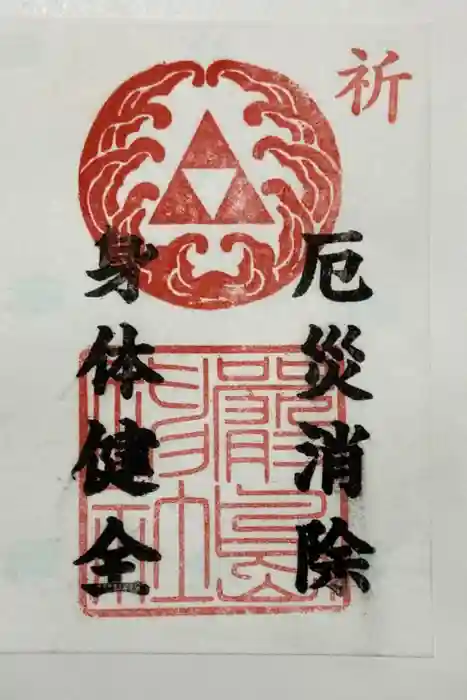 祈
厄災消除
身体健全
嚴島神社